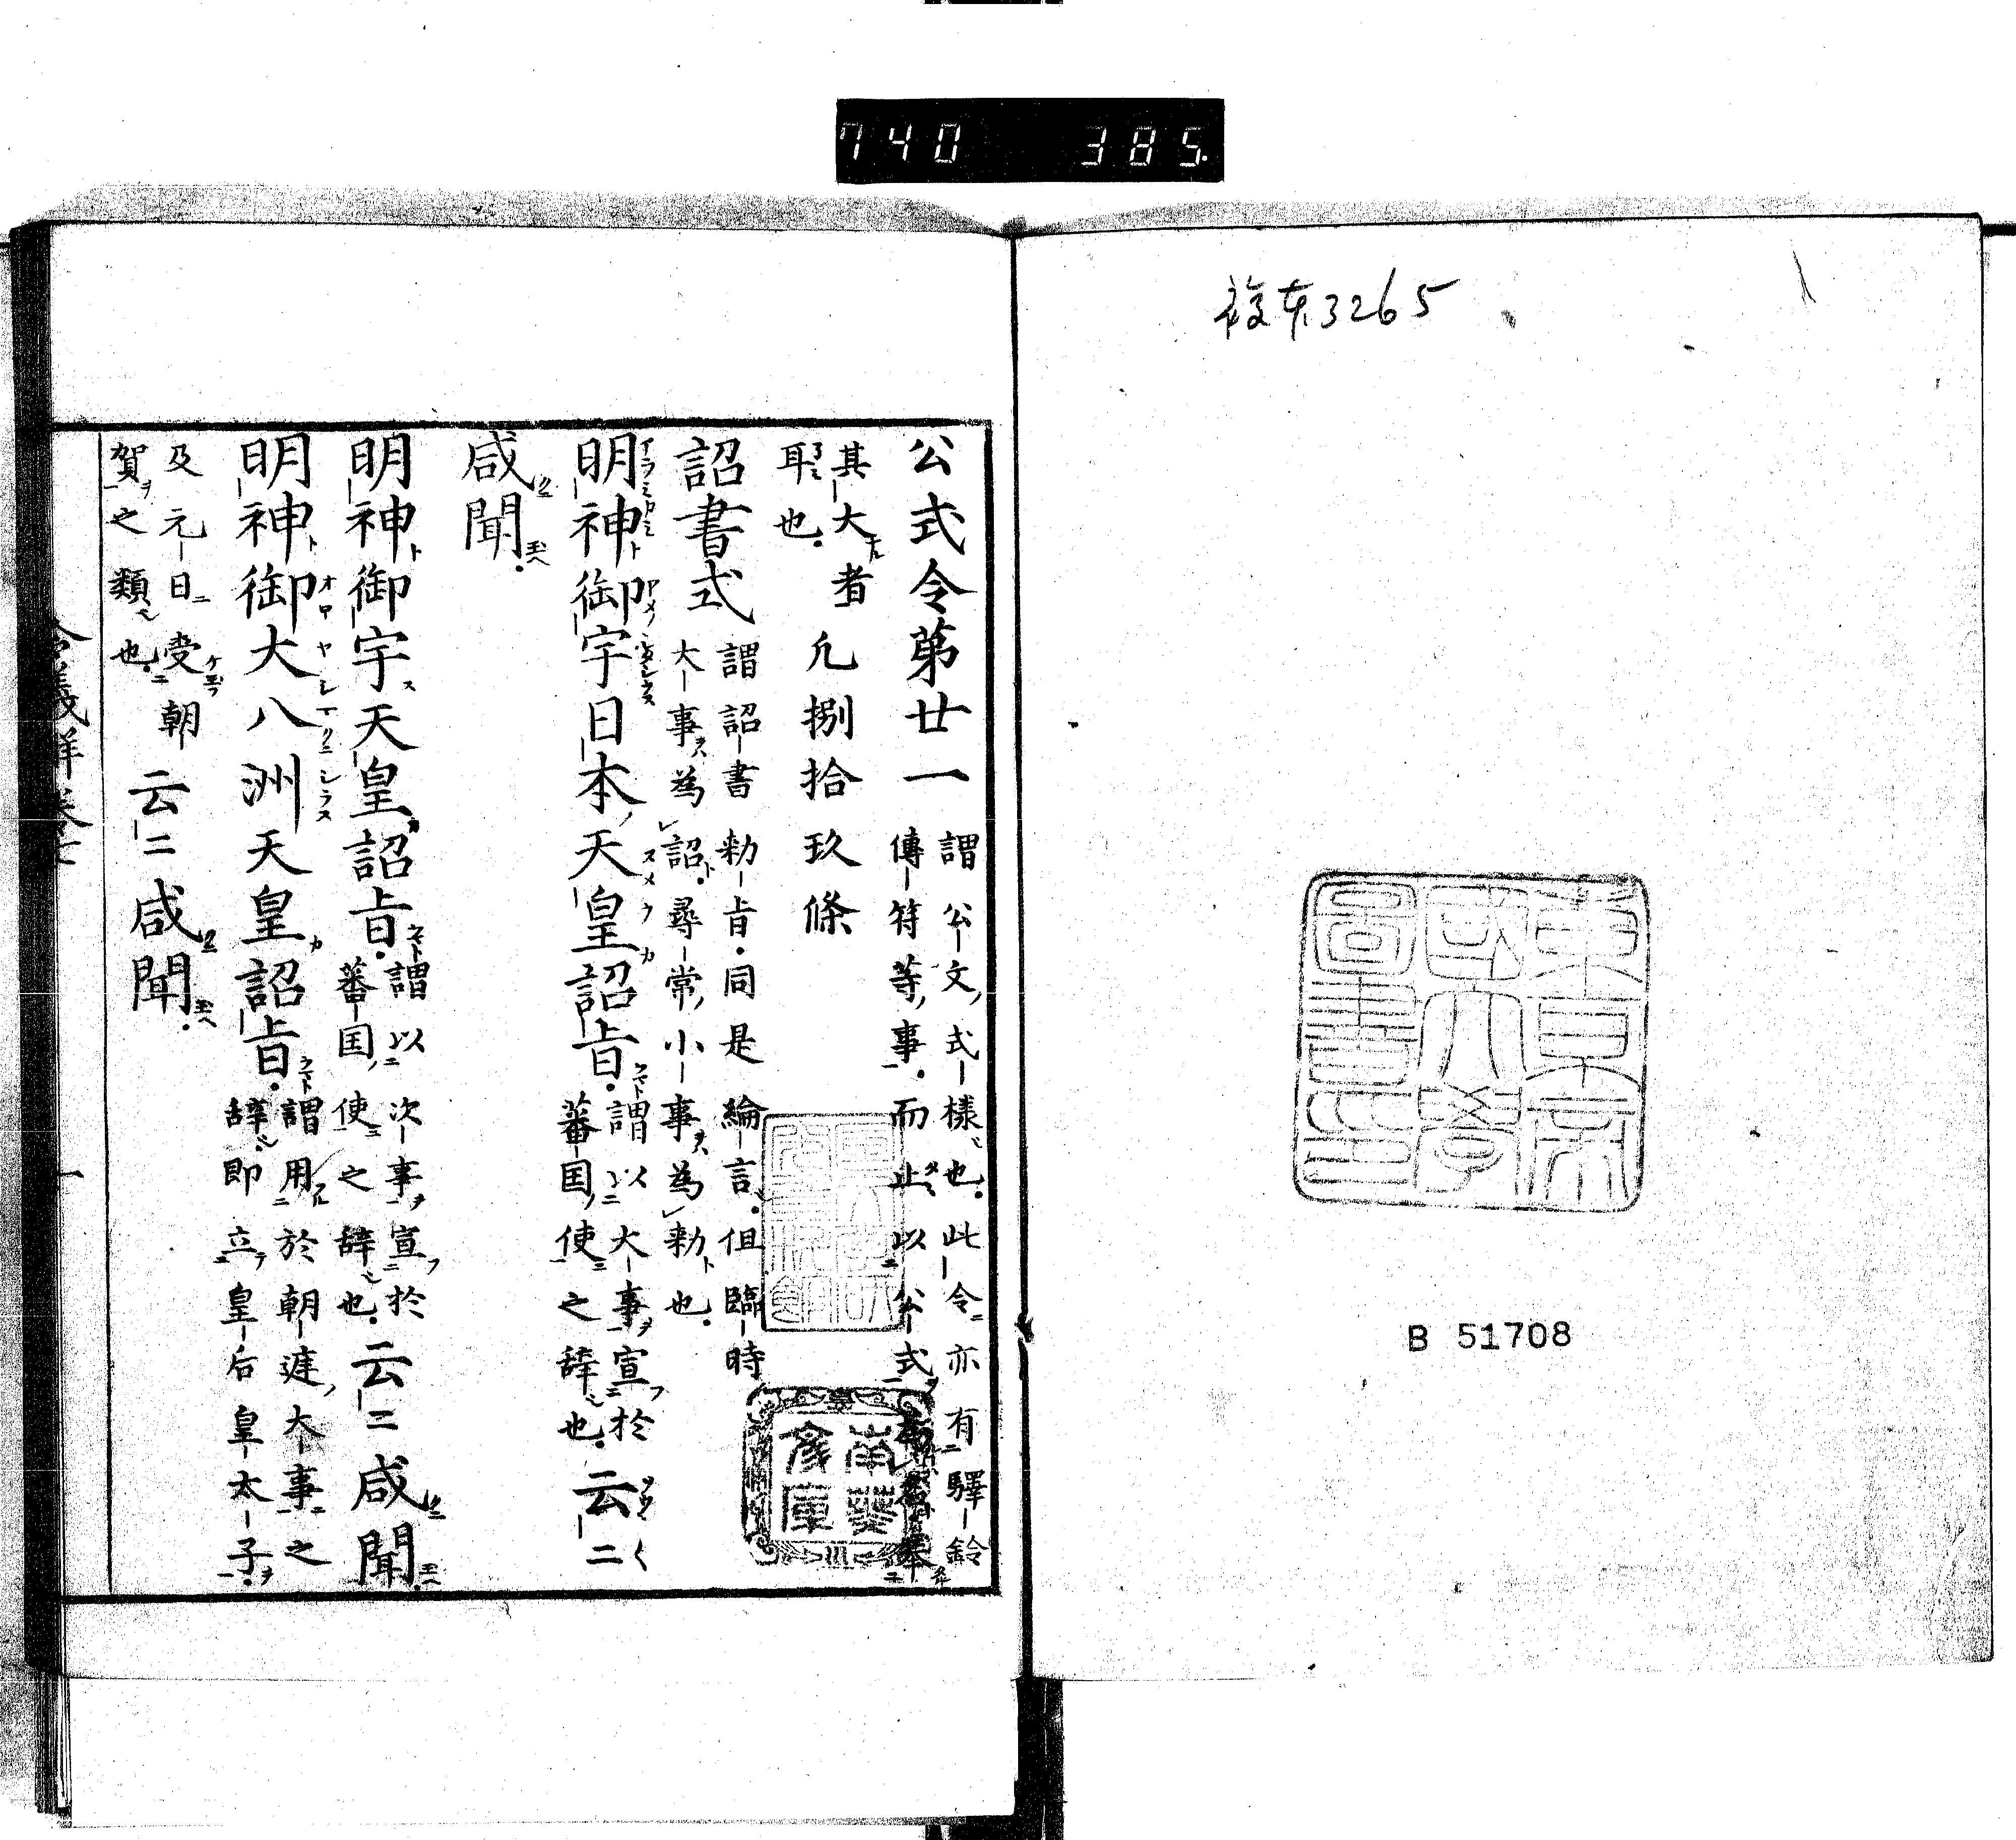 740 385.
複本3265
東京
帝国大学
圖書印
B 51708
公式令第廿一 謂公文式樣也此令亦有驛鈴
傳符等事而止以公式
其大者
耳也 凡捌拾玖條
詔書式 謂詔書勅旨同是綸言但臨時
大事為詔尋常小事為勅也
明神御宇日本天皇詔旨 謂以大事宣於
蕃国使之辞也 云〻
咸聞
明神御宇天皇詔旨 謂以次事宣於
蕃国使之辞也 云〻咸聞
明神御大八洲天皇詔旨 謂用於朝廷大事之
辞即立皇后皇太子
及元日受朝
賀之類也 云〻咸聞
令義解卷七 一
南葵
文庫